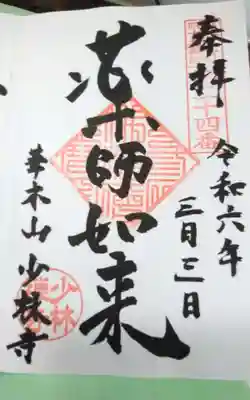 奉拝
十四番
令和六年
三月三日
薬師如来
華木山 少林寺
少林